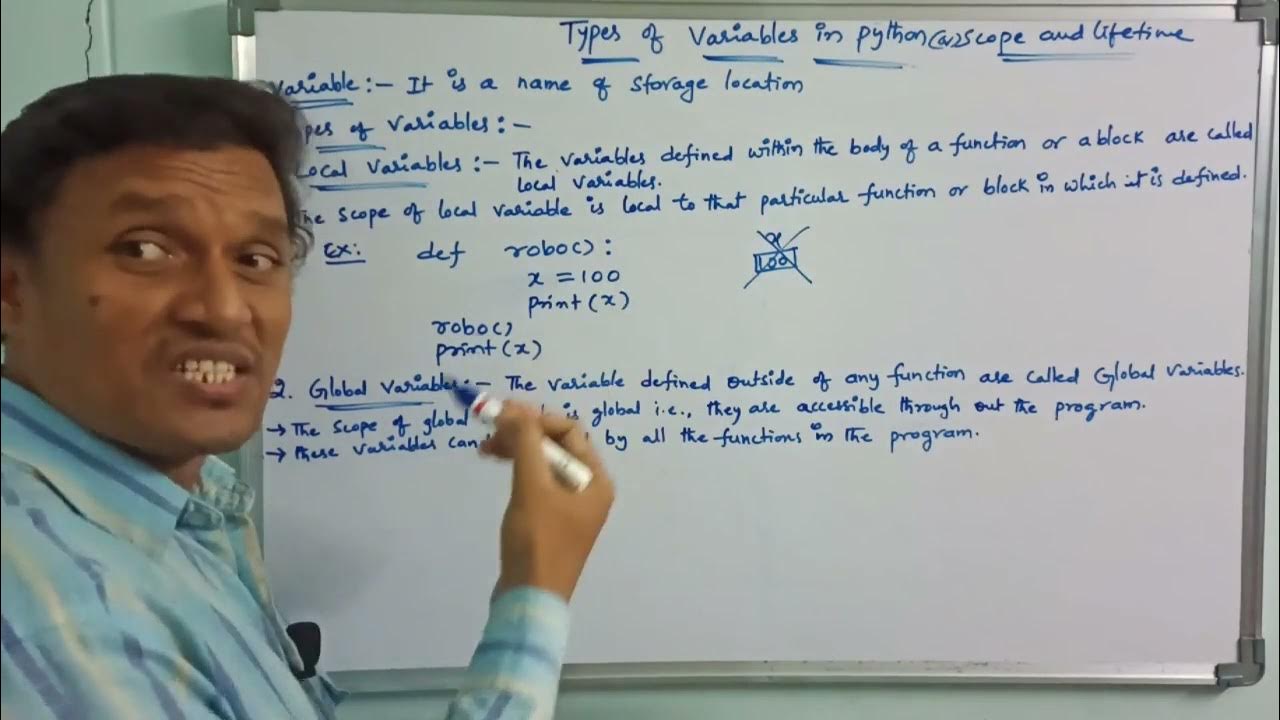 Types of Variables in python (or) scope and lifetime
Variable :- It is a name of storage location
of Variables :-
Local Variables :- The variables defined within the body of a function or a block are called
local variables.
scope of local variable is local to that particular function or block in which it is defined.
Ex: def robo():
x
100
x = 100
print(x)
robo()
print(x)
2. Global Variables :- The variable defined outside of any function are called Global variables.
→ The scope of global is global i.e., they are accessible through out the program.
→ These variables can by all the functions in the program.